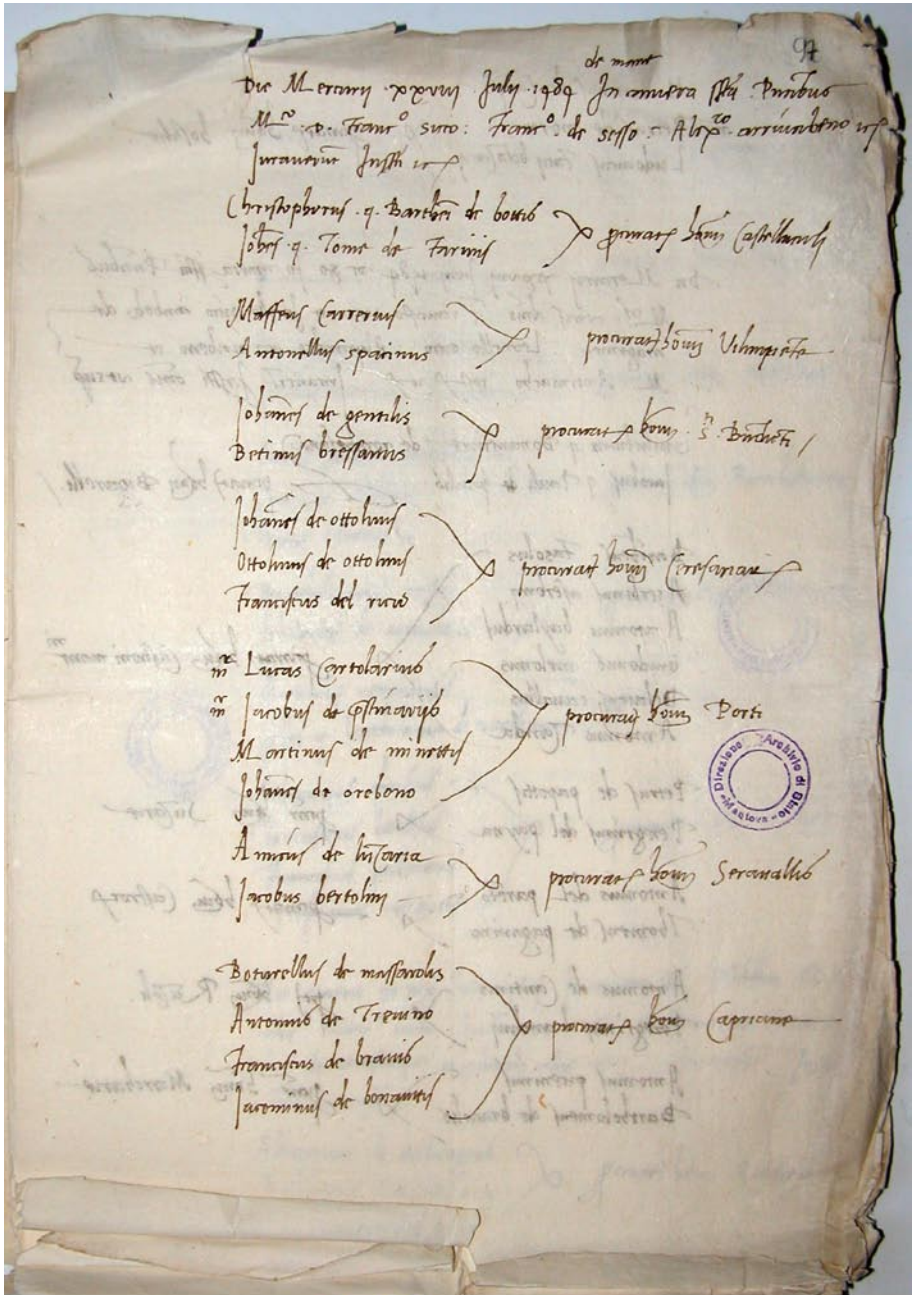 97
de mane
Die Mercurij xxviij Julij 1484 In camera ssta Pntibus
Mco d. Franco sico: Franco de sesso: Alexro arrivabeno
Juraverunt
Christophorus q. Barthei de bottis
Johes q. Tome de Farinis
procurat hom Castellaculi
Maffeus Carrerius
Antonellus spacinus
procurat hom Vilimpiete
Johanes de gentilis
Betinus bressanus
procurat hom S. Bndicti
Johanes de ottolinis
Ottolinus de ottolinis
Franciscus del ricio
procurat hom Ceresariar
mr Lucas Cartolarius
mr Jacobus de pstinarijs
Martinus de minettis
Johanes de orebono
procurat hom Porti
Direzione Archivio di Stato
Mantova
Amicus de luzaria
Jacobus bertolini
procurat hom Seravallis
Boturellus de massarolis
Antonius de Trevino
Franciscus de bravis
Jacominus de bonavitis
procurat hom Capriane